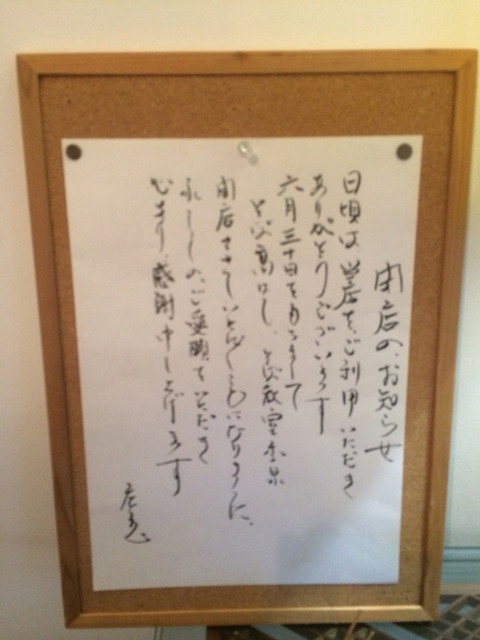 閉店の、お知らせ
日頃は当店を、ご利用いただき
ありがとうございます
六月三十日をもちまして
そば高はし、そば教室
閉店させていただくことになりました、
永らくの、ご愛顧をいただき
心より、感謝申し上げます
店主